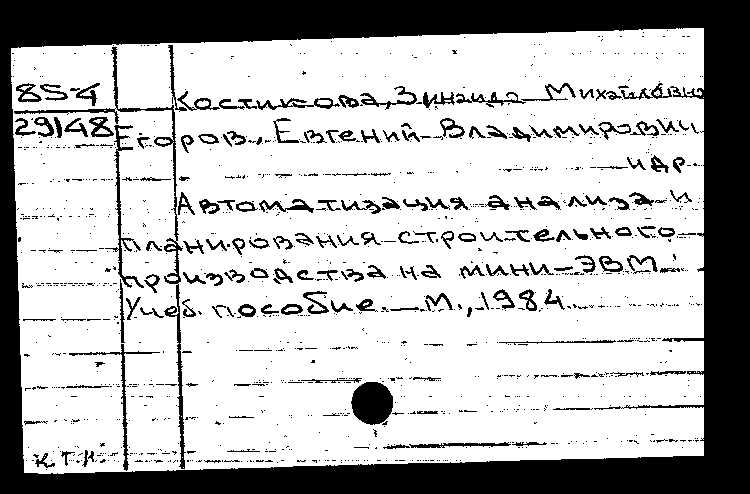 85-4
29148
Костикова, Зинаида Михайловна
Егоров, Евгений Владимирович
и др.
Автоматизация анализа и
планирования строительного
производства на мини-ЭВМ.
Учеб. пособие. М., 1984.
к.т.н.